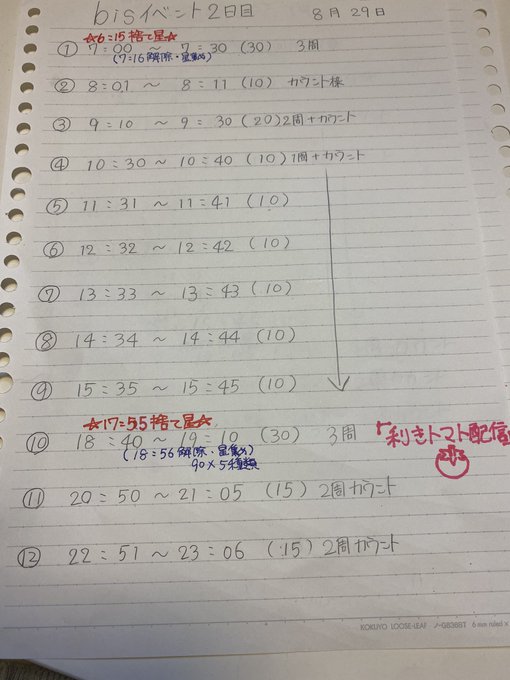 bisイベント2日目 8月29日
☆6:15捨て星☆
① 7:00 〜 7:30 (30) 3周
(7:16解除・星集め)
② 8:01 〜 8:11 (10) カウント様
③ 9:10 〜 9:30 (20) 2周+カウント
④ 10:30 〜 10:40 (10) 1周+カウント
⑤ 11:31 〜 11:41 (10)
⑥ 12:32 〜 12:42 (10)
⑦ 13:33 〜 13:43 (10)
⑧ 14:34 〜 14:44 (10)
⑨ 15:35 〜 15:45 (10)
☆17:55捨て星☆
⑩ 18:40 〜 19:10 (30) 3周 「利きトマト配信
(18:56解除・星集め)
90×54種類
⑪ 20:50 〜 21:05 (15) 2周カウント
⑫ 22:51 〜 23:06 (15) 2周カウント
KOKUYO LOOSE-LEAF ノ-G836BT 6mm ruled×